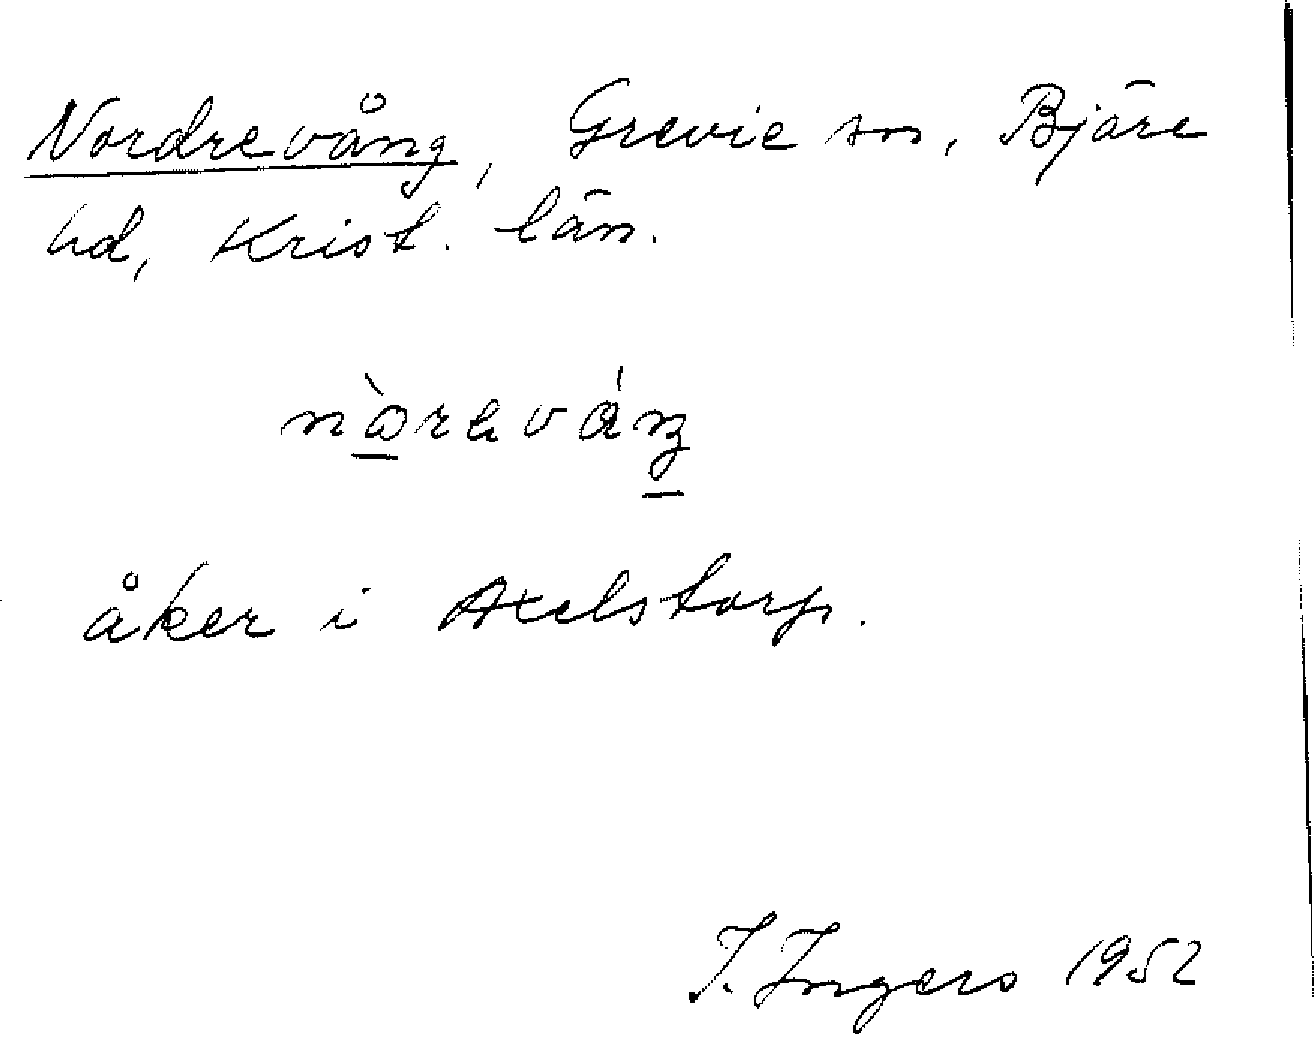 Nordrevång, Grevie sn, Bjäre
hd, Krist. län.
nòreváŋ
åker i Axelstorp.
I. Ingers 1952